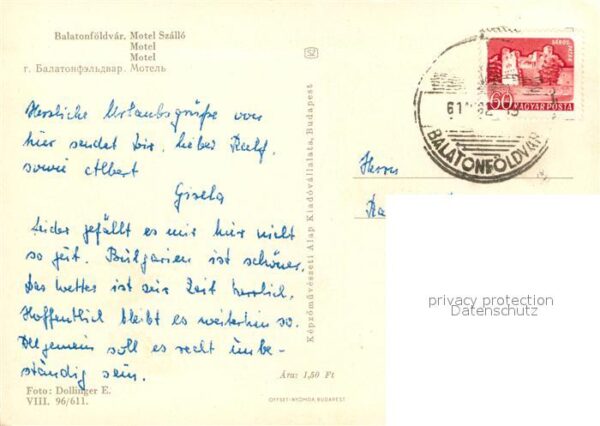 Balatonföldvár. Motel Szálló
Motel
Motel
г. Балатонфэльдвар. Мотель
Herzliche Urlaubsgrüße von
hier sendet Dir, lieber Ralf,
sowie Albert
Gisela
Leider gefällt es mir hier nicht
so gut. Bulgarien ist schöner.
Das Wetter ist zur Zeit herrlich.
Hoffentlich bleibt es weiterhin so.
Allgemein soll es recht unbe-
ständig sein.
Foto: Dollinger E.
VIII. 96/611.
Ára: 1,50 Ft
OFFSET-NYOMDA BUDAPEST
Képzőművészeti Alap Kiadóvállalata, Budapest
SZ
SÁROS
60 MAGYAR POSTA
BALATONFÖLDVÁR
Herrn
privacy protection
Datenschutz